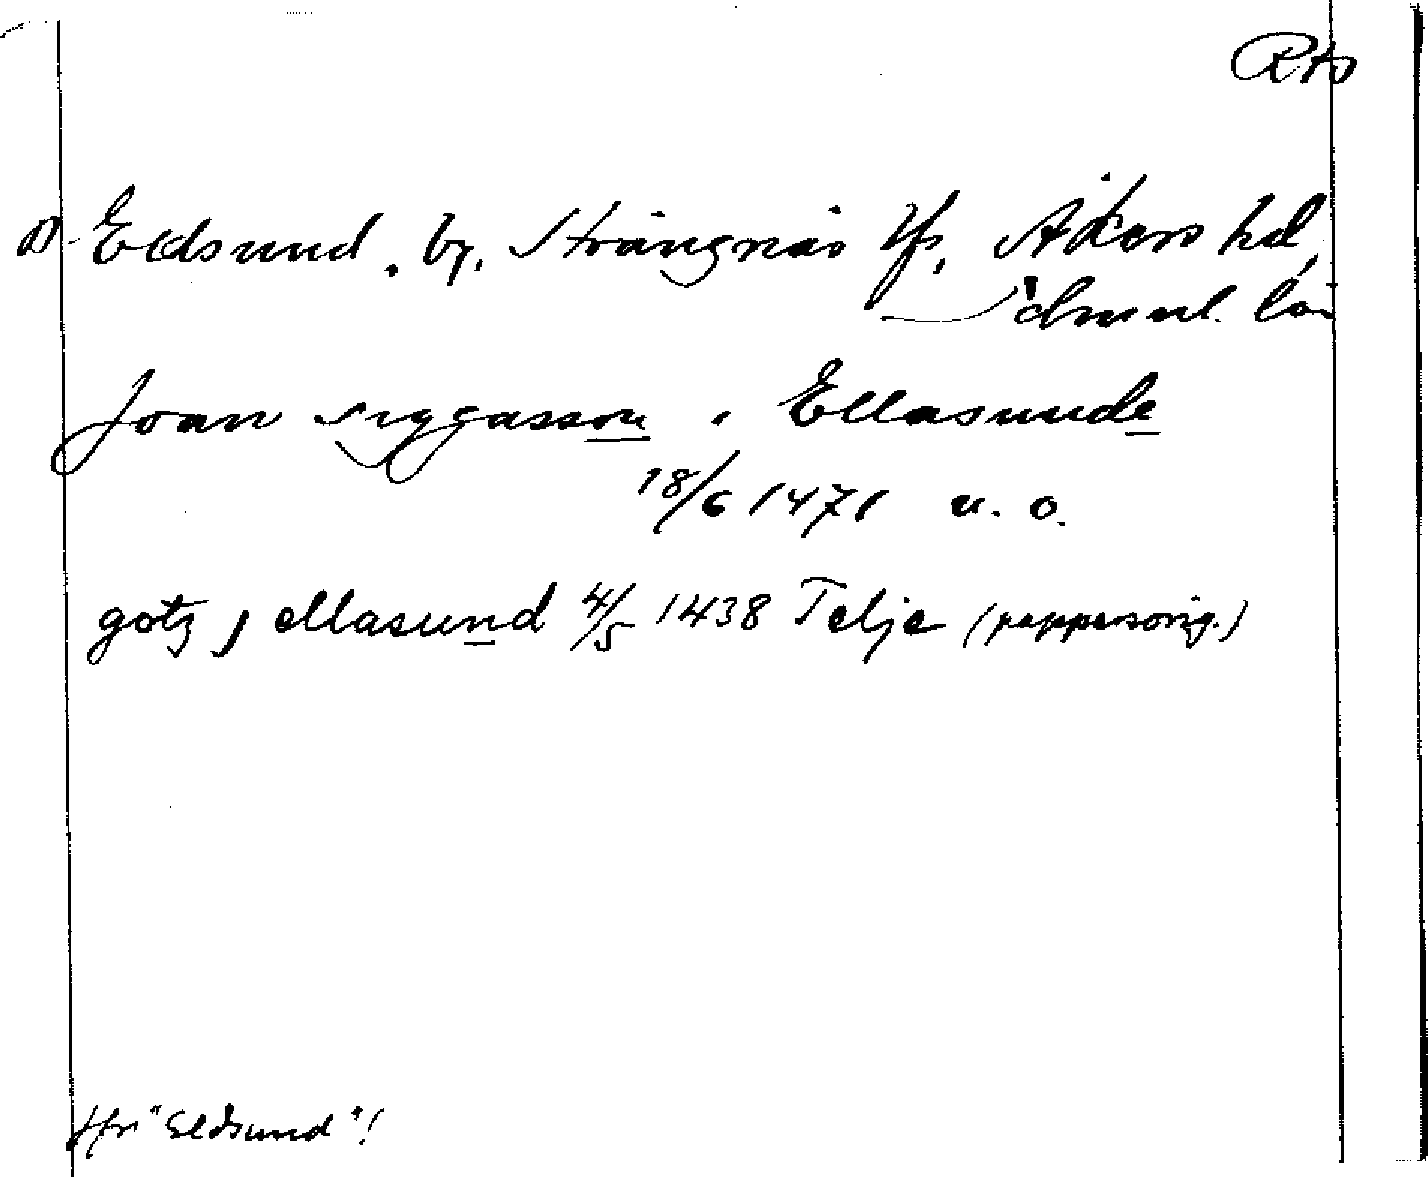 Rts
D. Eldsund, by, Strängnäs lfs, Åkers hd,
Södmnl. län
Joan siggasson i Ellasunde
18/6 1471 u. o.
gotz j ellasund 4/5 1438 Telje (pappersorig.)
Jfr "Eldsund"!